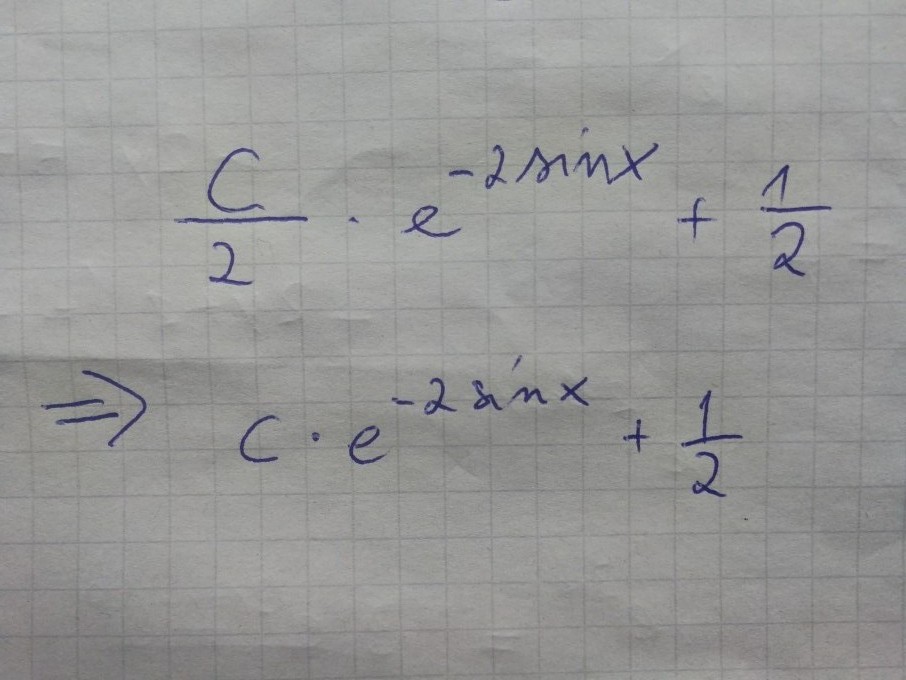 C/2 · e^(-2 sin x) + 1/2
⇒ C · e^(-2 sin x) + 1/2